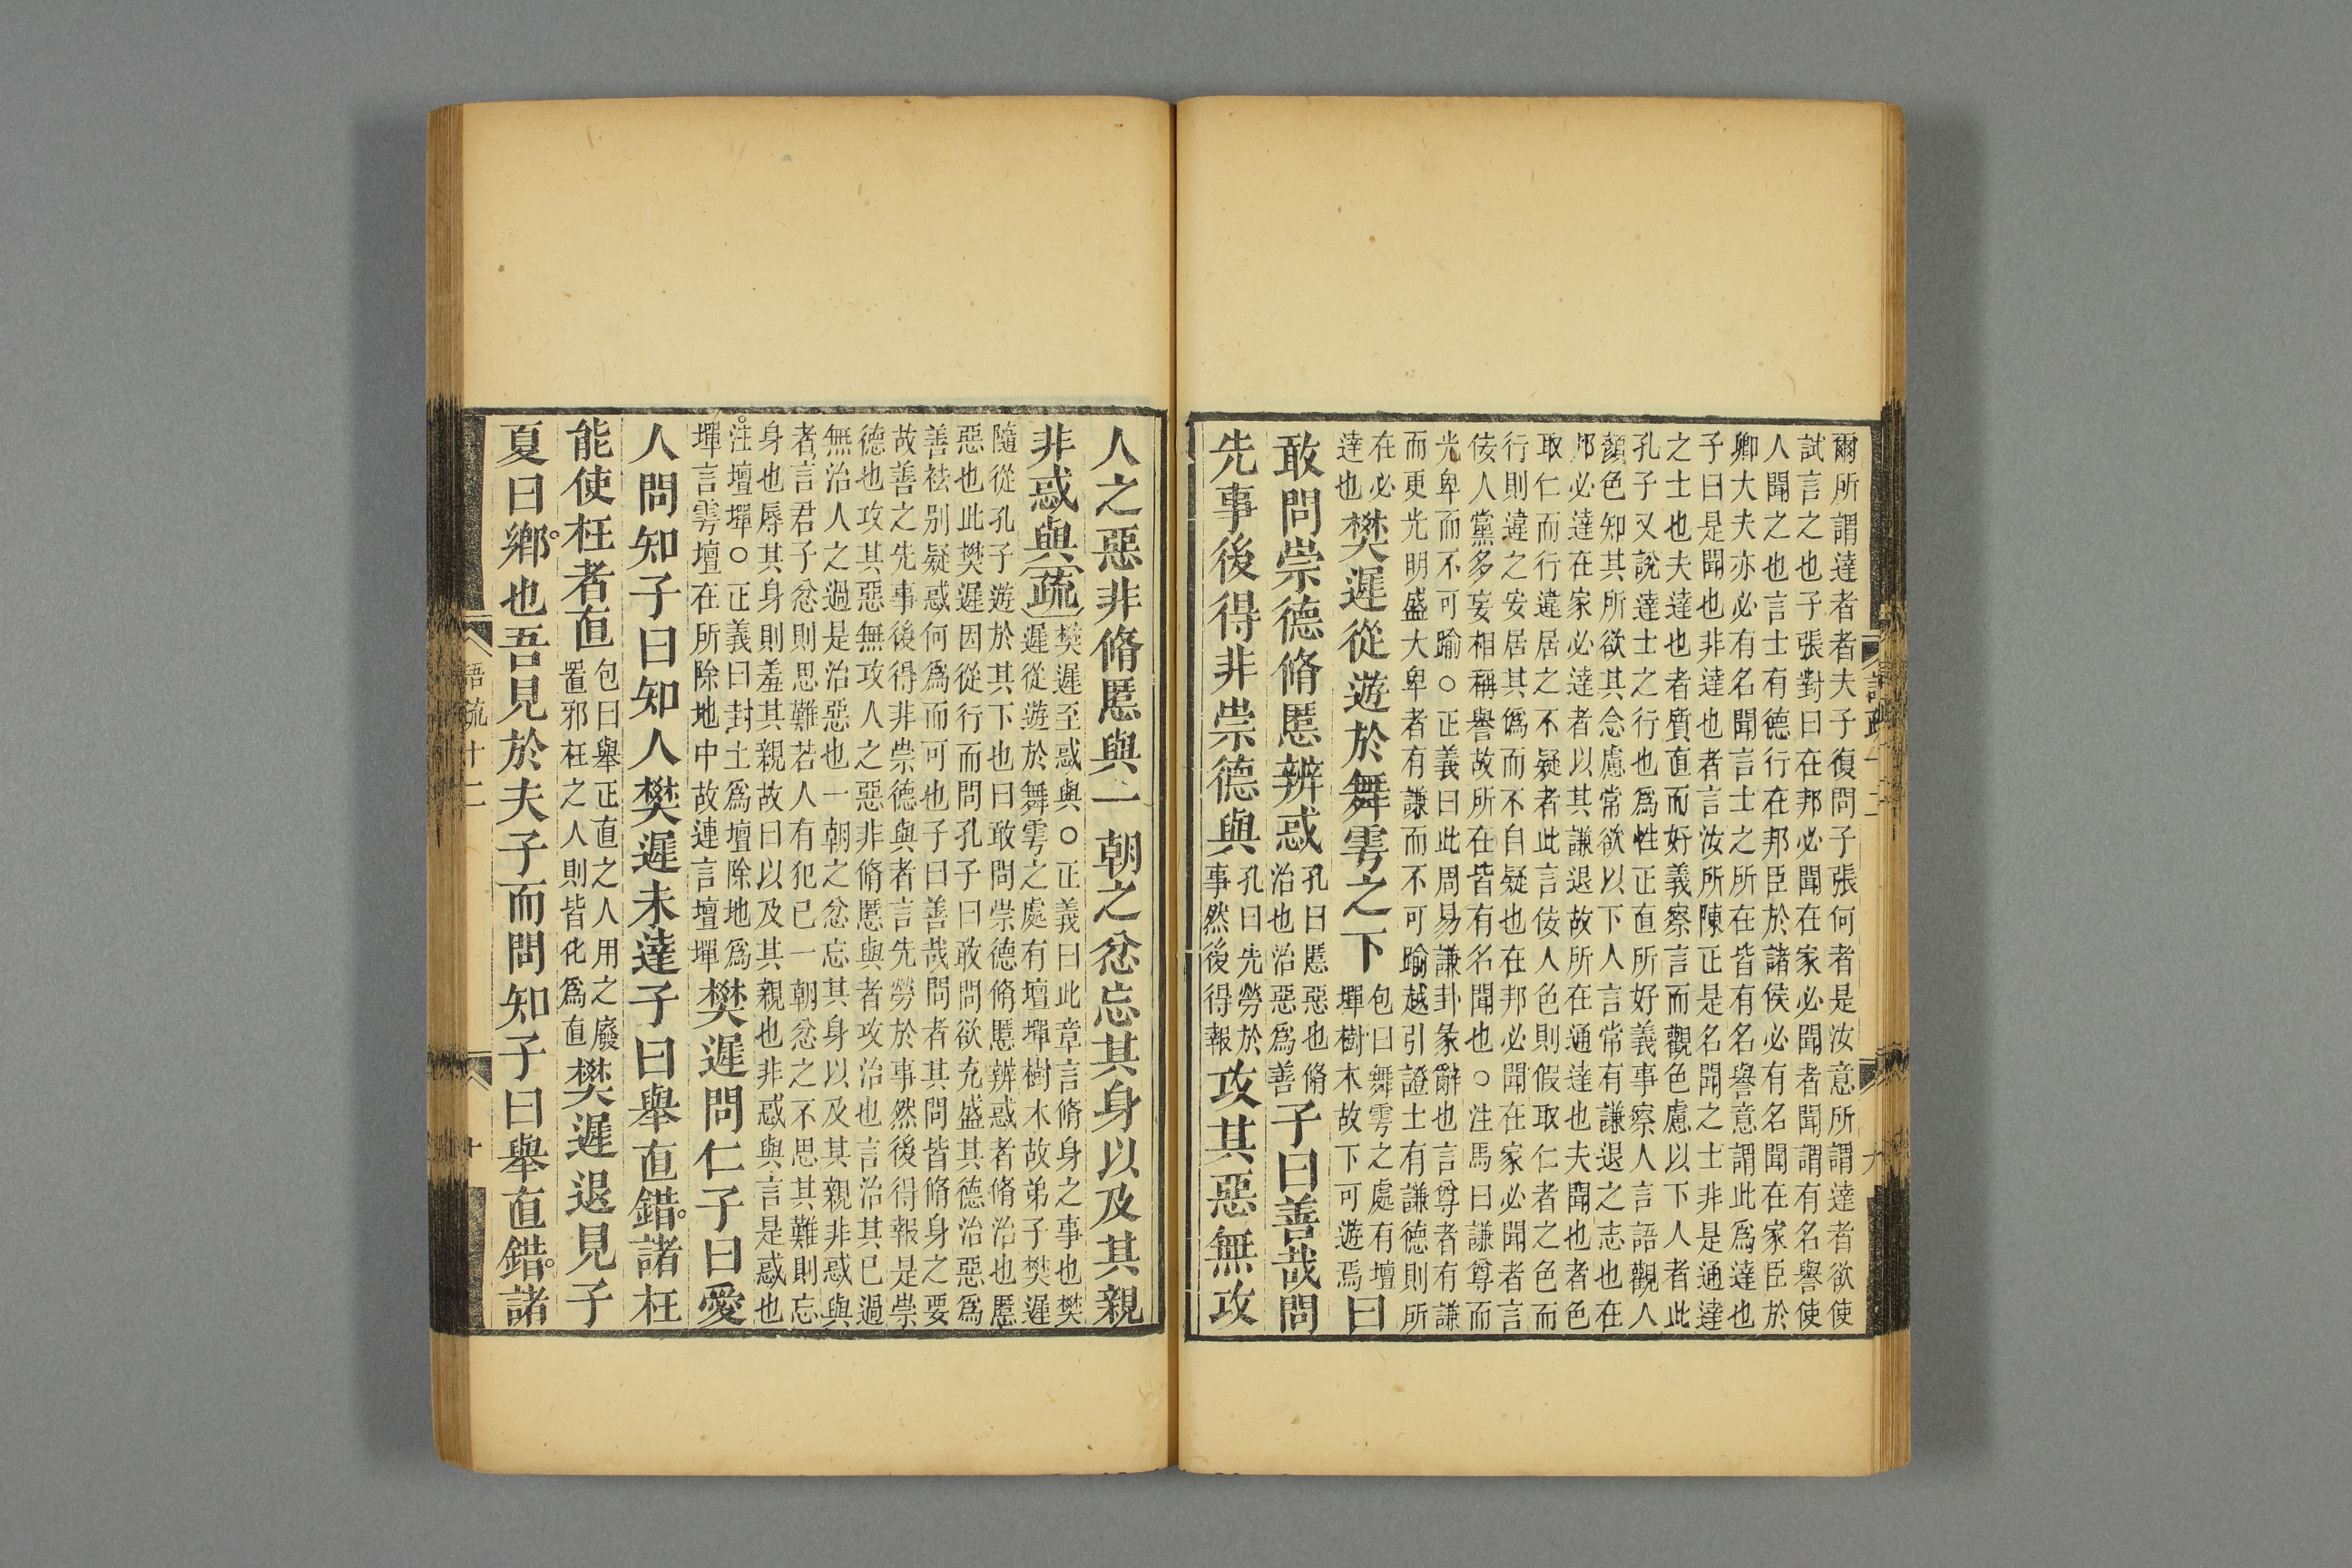 爾所謂達者者夫子復問子張何者是汝意所謂達者欲使
試言之也子張對曰在邦必聞在家必聞者聞謂有名譽使
人聞之也言士有德行在邦臣於諸侯必有名聞在家臣於
卿大夫亦必有名聞言士之所在皆有名譽意謂此爲達也
子曰是聞也非達也者言汝所陳正是名聞之士非是通達
之士也夫達也者質直而好義察言而觀色慮以下人者此
孔子又說達士之行也爲性正直所好義事察人言語觀人
顏色知其所欲其念慮常欲以下人言常有謙退之志也在
邦必達在家必達者以其謙退故所在通達也夫聞也者色
取仁而行違居之不疑者此言佞人色則假取仁者之色而
行則違之安居其僞而不自疑也在邦必聞在家必聞者言
佞人黨多妄相稱譽故所在皆有名聞也○注馬曰謙尊而
光卑而不可踰○正義曰此周易謙卦彖辭也言尊者有謙
而更光明盛大卑者有謙而不可踰越引證士有謙德則所
在必達也樊遲從遊於舞雩之下包曰舞雩之處有壇墠樹木故下可遊焉曰
敢問崇德脩慝辨惑孔曰慝惡也脩治也治惡爲善子曰善哉問
先事後得非崇德與孔曰先勞於事然後得報攻其惡無攻
人之惡非脩慝與一朝之忿忘其身以及其親
非惑與疏樊遲至惑與○正義曰此章言脩身之事也樊遲從遊於舞雩之處有壇墠樹木故弟子樊遲
隨從孔子遊於其下也曰敢問崇德脩慝辨惑者脩治也慝
惡也此樊遲因從行而問孔子曰敢問欲充盛其德治惡爲
善袪别疑惑何爲而可也子曰善哉問者其問皆脩身之要
故善之先事後得非崇德與者言先勞於事然後得報是崇
德也攻其惡無攻人之惡非脩慝與者攻治也言治其已過
無治人之過是治惡也一朝之忿忘其身以及其親非惑與
者言君子忿則思難若人有犯已一朝忿之不思其難則忘
身也辱其身則羞其親故曰以及其親也非惑與言是惑也
注壇墠○正義曰封土爲壇除地爲墠言雩壇在所除地中故連言壇墠樊遲問仁子曰愛
人問知子曰知人樊遲未達子曰舉直錯諸枉
能使枉者直包曰舉正直之人用之廢置邪枉之人則皆化爲直樊遲退見子
夏曰鄉也吾見於夫子而問知子曰舉直錯諸
語疏十二
十